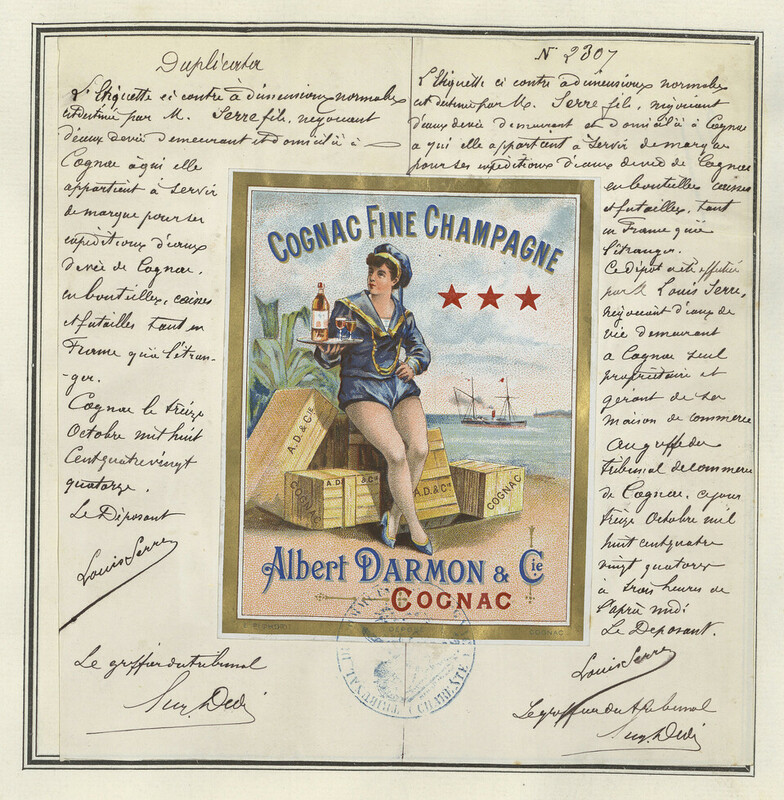 Duplicata
L'Etiquette ci contre à dimensions normales
est destinée par M. Serre fils, négociant
d'eaux devie demeurant et domicilié à
Cognac à qui elle
appartient à servir
de marque pour ses
expéditions d'eaux
devie de Cognac,
en bouteilles, caisses
et futailles tant en
France qu'à l'étran-
-ger.
Cognac le treize
Octobre mil huit
cent quatre vingt
quatorze.
Le Déposant
Louis Serre
Le greffier du tribunal
N 2307
L'Etiquette ci contre à dimensions normales
est destinée par M. Serre fils, négociant
d'eaux devie demeurant et domicilié à Cognac
a qui elle appartient à servir de marque
pour ses expéditions d'eaux devie de Cognac
en bouteilles caisses
et futailles, tant
en France que
l'étranger.
Ce dépot a été effectué
par M Louis Serre,
négociant d'eaux de
vie demeurant
a Cognac seul
propriétaire et
gérant de sa
maison de commerce
au greffe du
tribunal de commerce
de Cognac, ce jour
treize Octobre mil
huit cent quatre
vingt quatorze
à trois heures de
l'après midi
Le Déposant.
Louis Serre
Le greffier du tribunal
COGNAC FINE CHAMPAGNE
A.D. & CIE
COGNAC
A.D. &
A.D. & Cie
COGNAC
Albert DARMON & Cie
COGNAC
DÉPOSÉ
COGNAC
TRIBUNAL
CHARENTE